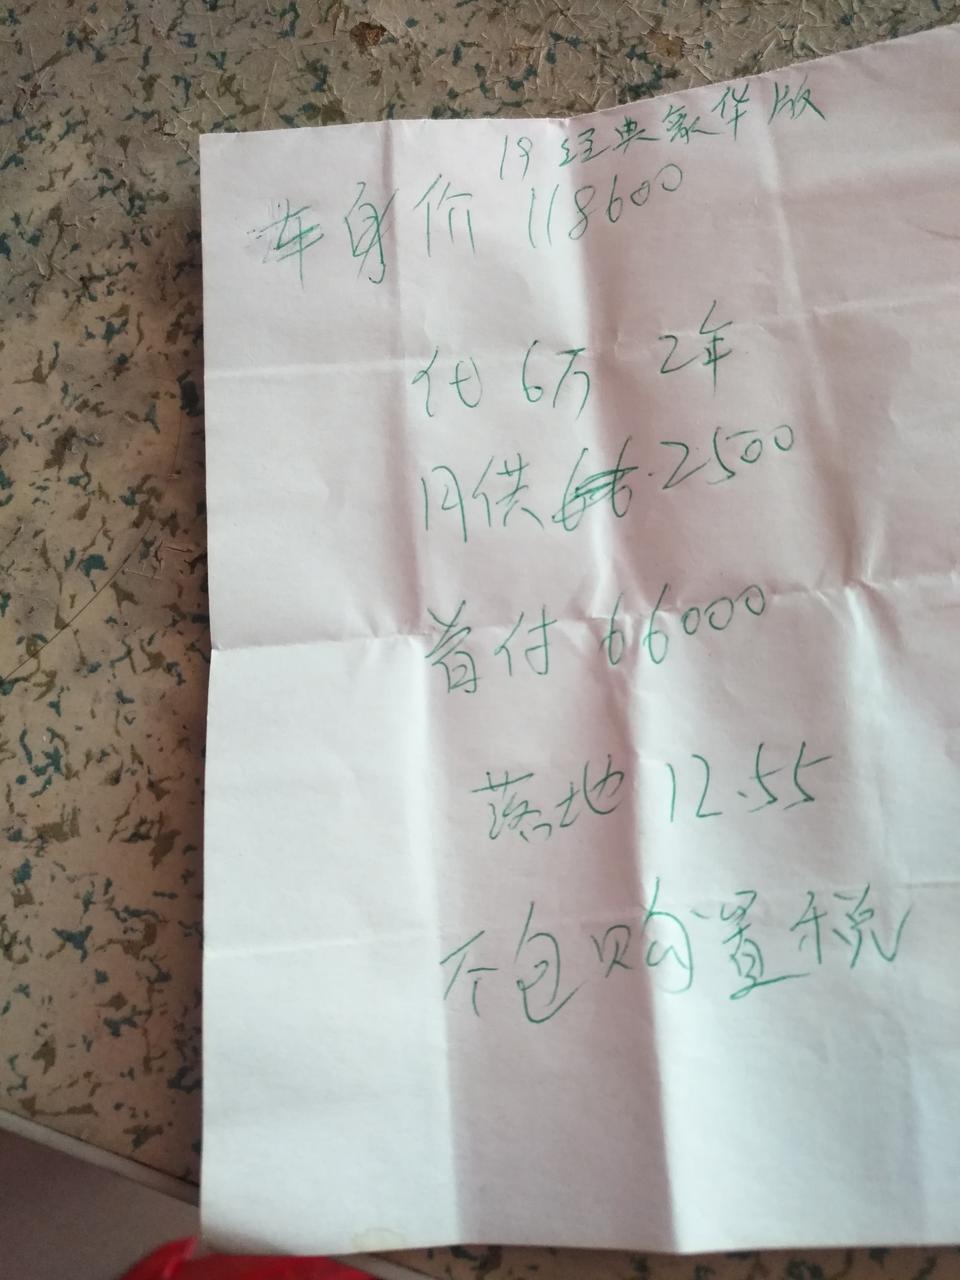 19经典豪华版
车身价 118600
代6万 2年
月供 2500
首付 66000
落地 12.55
不包购置税